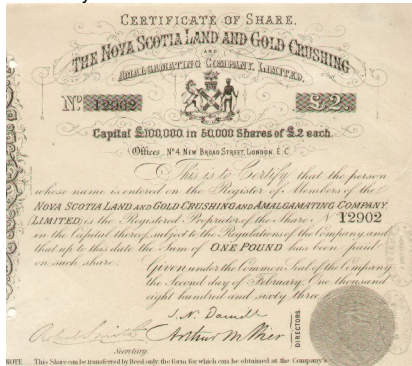 CERTIFICATE OF SHARE,
THE NOVA SCOTIA LAND AND GOLD CRUSHING
AND
AMALGAMATING COMPANY, LIMITED,
No 12902 £2
Capital £100,000, in 50,000 Shares of £2 each.
Offices, No 4, NEW BROAD STREET, LONDON, E.C.
This is to Certify that the person
whose name is entered on the Register of Members of the
NOVA SCOTIA LAND AND GOLD CRUSHING AND AMALGAMATING COMPANY
(LIMITED) is the Registered Proprietor of the Share No 12902
in the Capital thereof, subject to the Regulations of the Company, and
that up to this date the Sum of ONE POUND has been paid
on such share.
Given under the Common Seal of the Company
the Second day of February, One thousand
eight hundred and sixty three
DIRECTORS
Secretary.
NOTE This Share can be transferred by Deed only the form for which can be obtained at the Company's